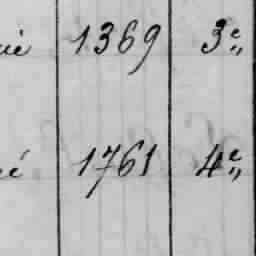 1369 3e„
1761 4e„